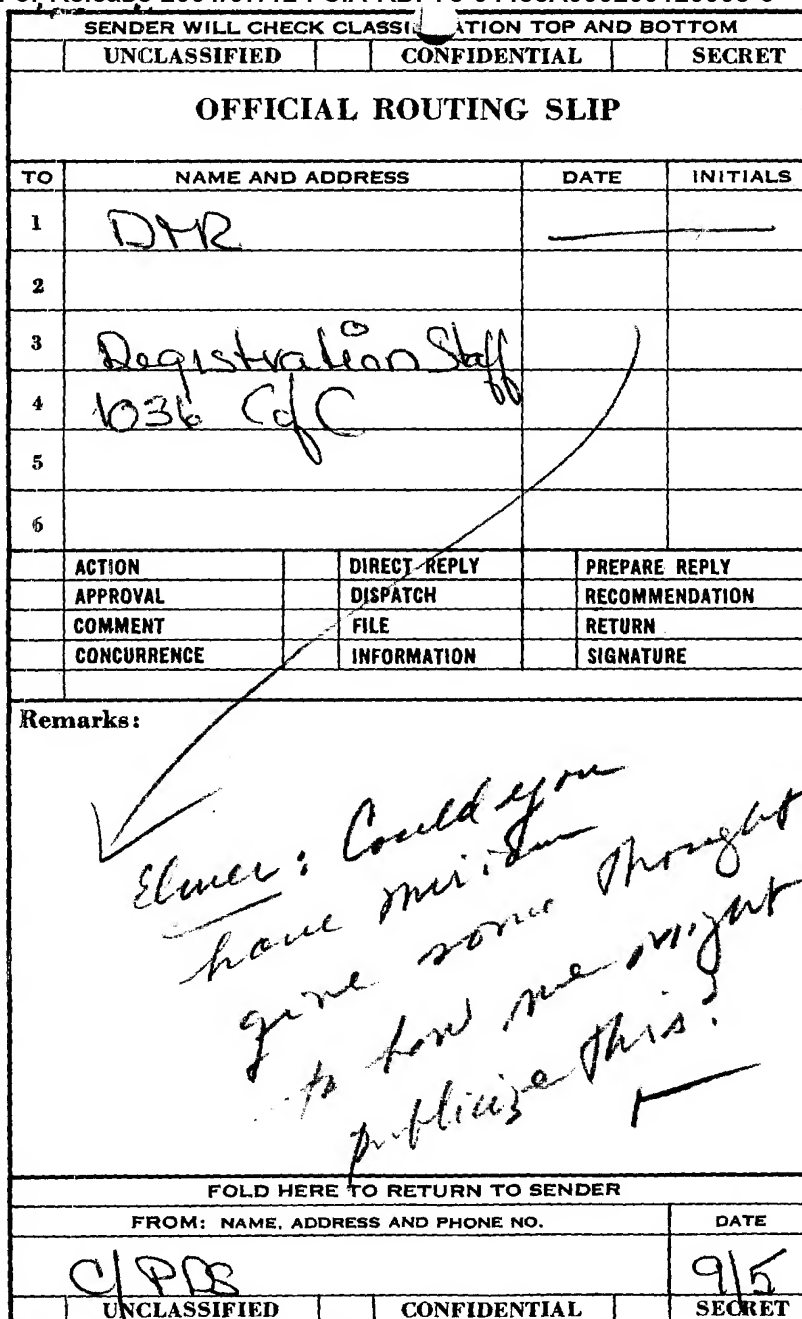 SENDER WILL CHECK CLASSIFICATION TOP AND BOTTOM
UNCLASSIFIED CONFIDENTIAL SECRET
OFFICIAL ROUTING SLIP
TO NAME AND ADDRESS DATE INITIALS
1 DMR
2
3 Registration Staff
4 1036 CofC
5
6
ACTION DIRECT REPLY PREPARE REPLY
APPROVAL DISPATCH RECOMMENDATION
COMMENT FILE RETURN
CONCURRENCE INFORMATION SIGNATURE
Remarks:
Elmer: Could you
have Miriam
give some thought
to how we might
publicize this?
FOLD HERE TO RETURN TO SENDER
FROM: NAME, ADDRESS AND PHONE NO. DATE
C/PDS 9/5
UNCLASSIFIED CONFIDENTIAL SECRET